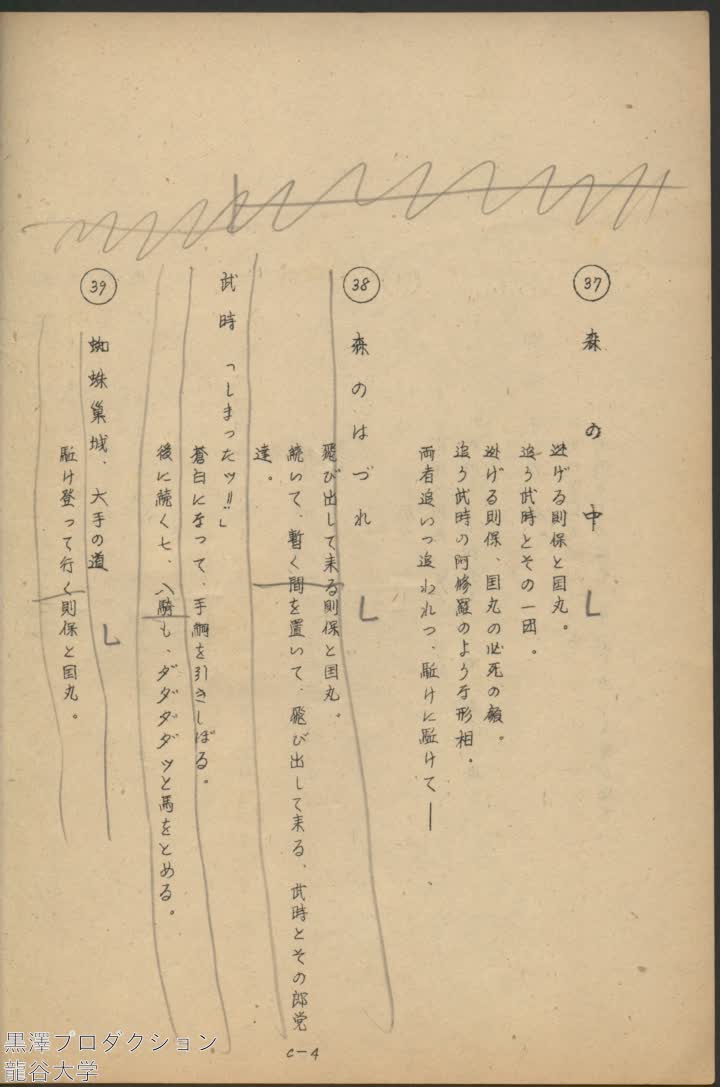 37 森の中
逃げる則保と国丸。
追う武時とその一団。
逃げる則保、国丸の必死の顔。
追う武時の阿修羅のような形相。
両者追いつ追われつ、駈けに駈けて――
38 森のはづれ
飛び出して来る則保と国丸。
続いて、暫く間を置いて、飛び出して来る、武時とその郎党
達。
武時「しまったッ!!」
蒼白になって、手綱を引きしぼる。
後に続く七、八騎も、ダダダダッと馬をとめる。
39 蜘蛛巣城、大手の道
駈け登って行く則保と国丸。
C-4
黒澤プロダクション
龍谷大学